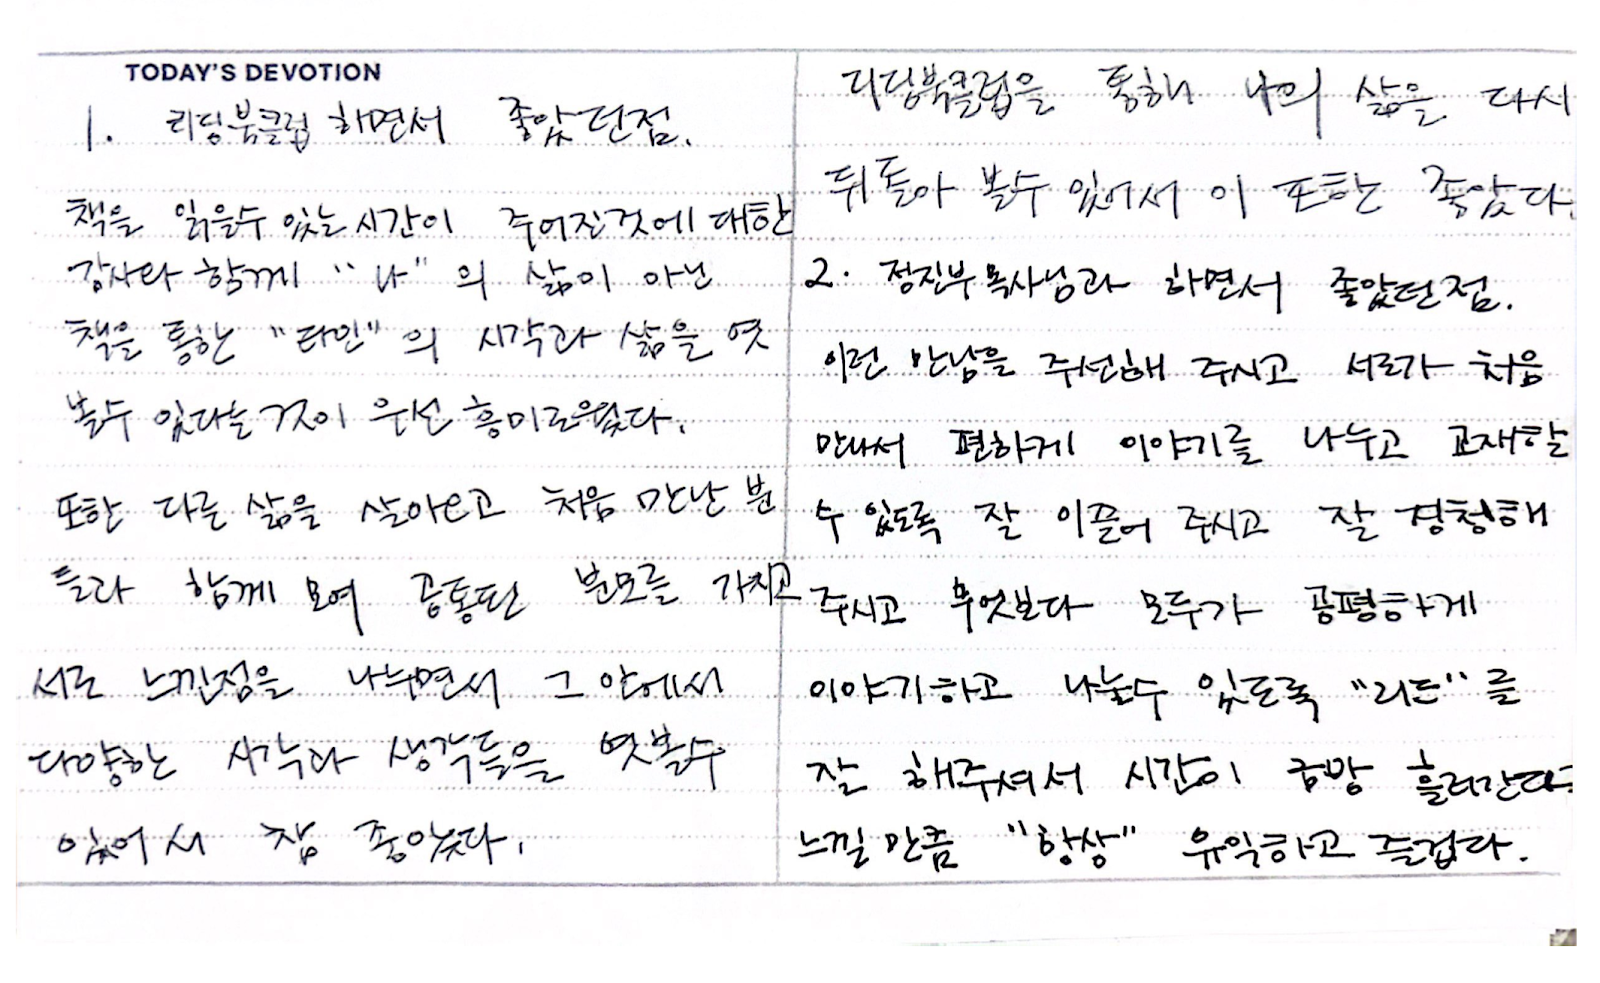 TODAY'S DEVOTION
1. 리딩북클럽 하면서 좋았던점.
책을 읽을수 있는 시간이 주어진것에 대한
감사와 함께 "나"의 삶이 아닌
책을 통한 "타인"의 시각과 삶을 엿
볼수 있다는 것이 우선 흥미로웠다.
또한 다른 삶을 살아오고 처음 만난 분
들과 함께 모여 공통된 분모를 가지고
서로 느낀점을 나누면서 그 안에서
다양한 시각과 생각들을 엿볼수
있어서 참 좋았다.
리딩북클럽을 통해 나의 삶을 다시
뒤돌아 볼수 있어서 이 또한 좋았다.
2. 정진부목사님과 하면서 좋았던점.
이런 만남을 주선해 주시고 서로가 처음
만나서 편하게 이야기를 나누고 교재할
수 있도록 잘 이끌어 주시고 잘 경청해
주시고 무엇보다 모두가 공평하게
이야기하고 나눌수 있도록 "리드"를
잘 해주셔서 시간이 금방 흘러간다고
느낄만큼 "항상" 유익하고 즐겁다.